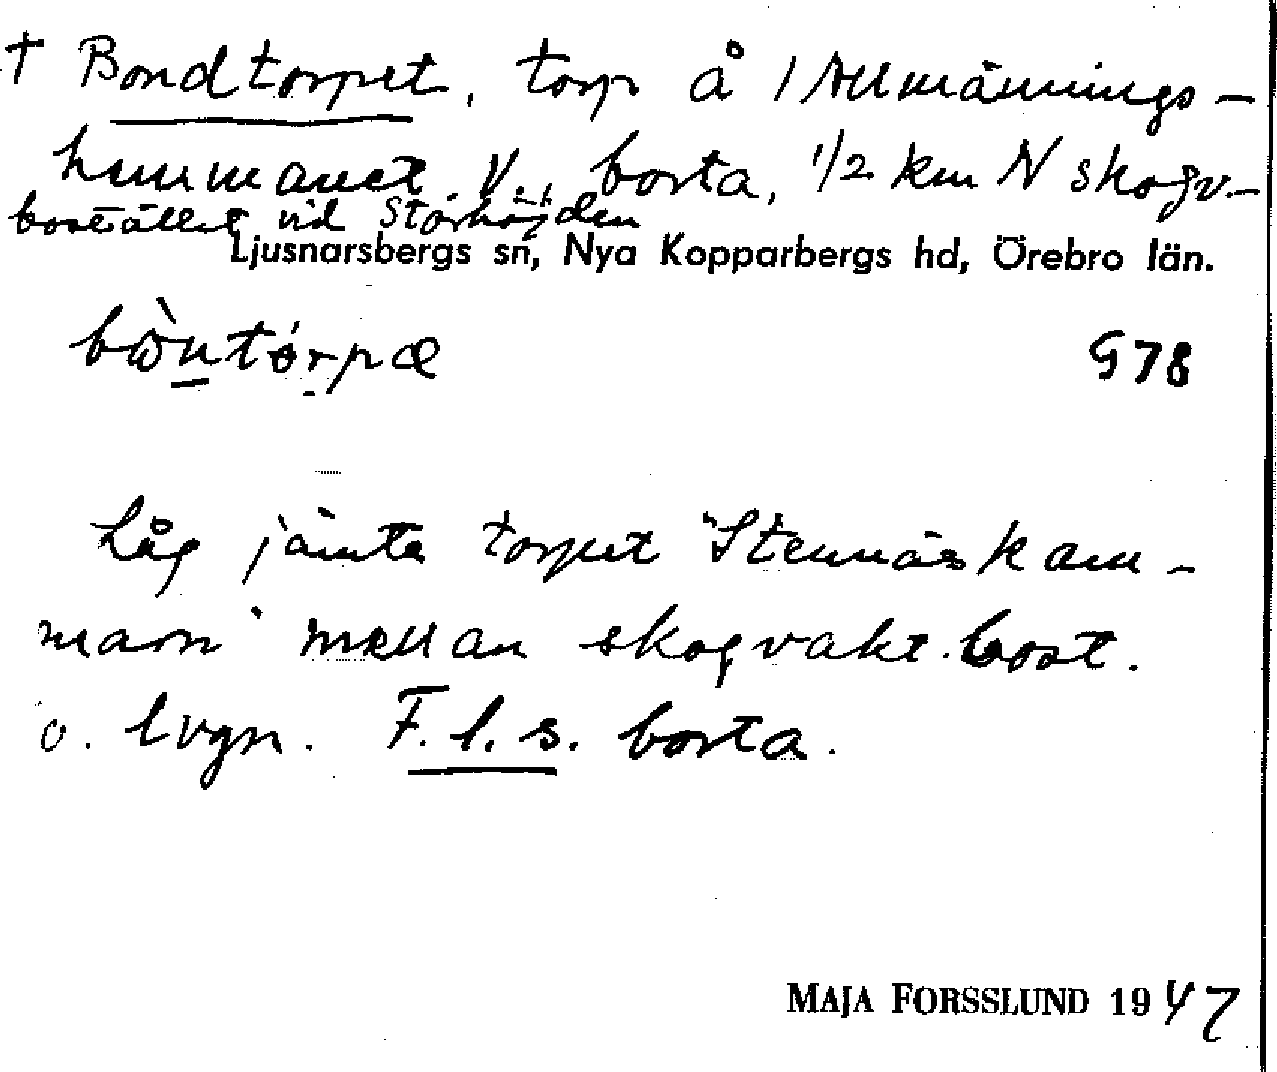 † Bondtorpet, torp å / Allmännings-
hemmanet. V., borta, 1/2 km N skogv.-
bostället vid Storhöjden
Ljusnarsbergs sn, Nya Kopparbergs hd, Örebro län.
978
Låg jämte torpet "Stennäskam-
marn" mellan skogvakt.bost.
o. lvgn. F.l.s. borta.
MAJA FORSSLUND 1947